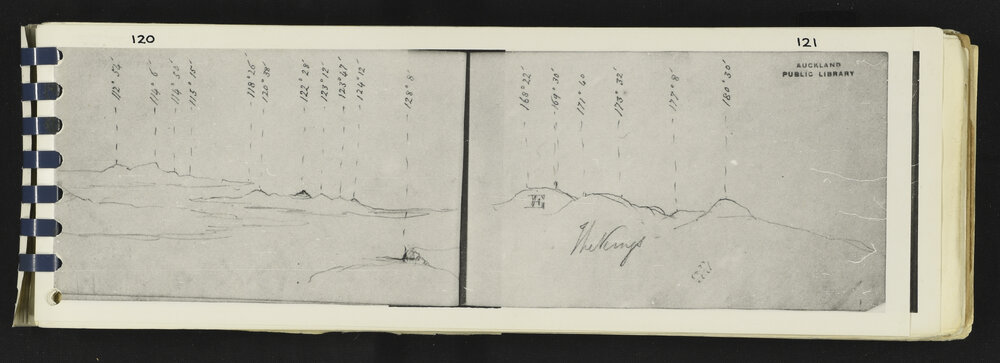 120
112° 54'
114° 6'
114° 50'
115° 15'
118° 26'
120° 38'
122° 28'
123° 12'
123° 47'
124° 12'
128° 8'
121
AUCKLAND
PUBLIC LIBRARY
168° 22'
169° 30'
171° 40
173° 32'
177° 8'
180° 30'
The Kings